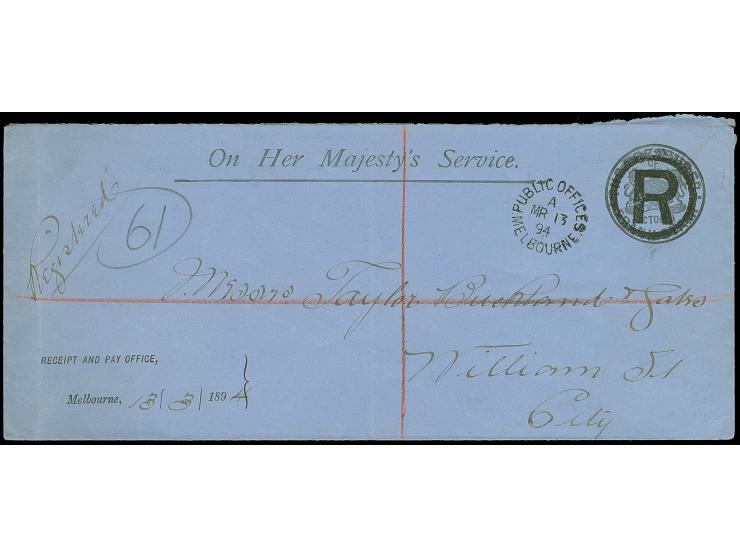 On Her Majesty's Service.
PUBLIC OFFICES
A
MR 13
94
MELBOURNE
R
Registered
61
Messrs Taylor Buckland & Gates
William St
City
RECEIPT AND PAY OFFICE,
Melbourne, 13/3/1894